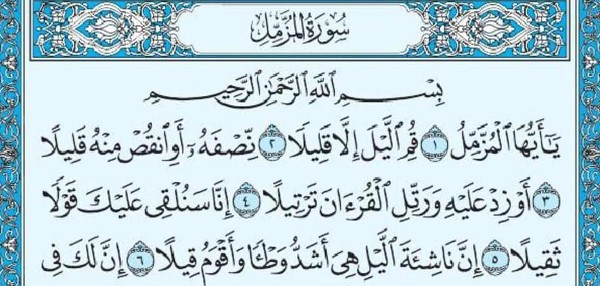 سُورَةُ المُزَّمِّلِ
بِسْمِ ٱللَّهِ ٱلرَّحْمَٰنِ ٱلرَّحِيمِ
يَٰٓأَيُّهَا ٱلْمُزَّمِّلُ ١ قُمِ ٱلَّيْلَ إِلَّا قَلِيلًا ٢ نِّصْفَهُۥٓ أَوِ ٱنقُصْ مِنْهُ قَلِيلًا
٣ أَوْ زِدْ عَلَيْهِ وَرَتِّلِ ٱلْقُرْءَانَ تَرْتِيلًا ٤ إِنَّا سَنُلْقِى عَلَيْكَ قَوْلًا
ثَقِيلًا ٥ إِنَّ نَاشِئَةَ ٱلَّيْلِ هِىَ أَشَدُّ وَطْـًٔا وَأَقْوَمُ قِيلًا ٦ إِنَّ لَكَ فِى